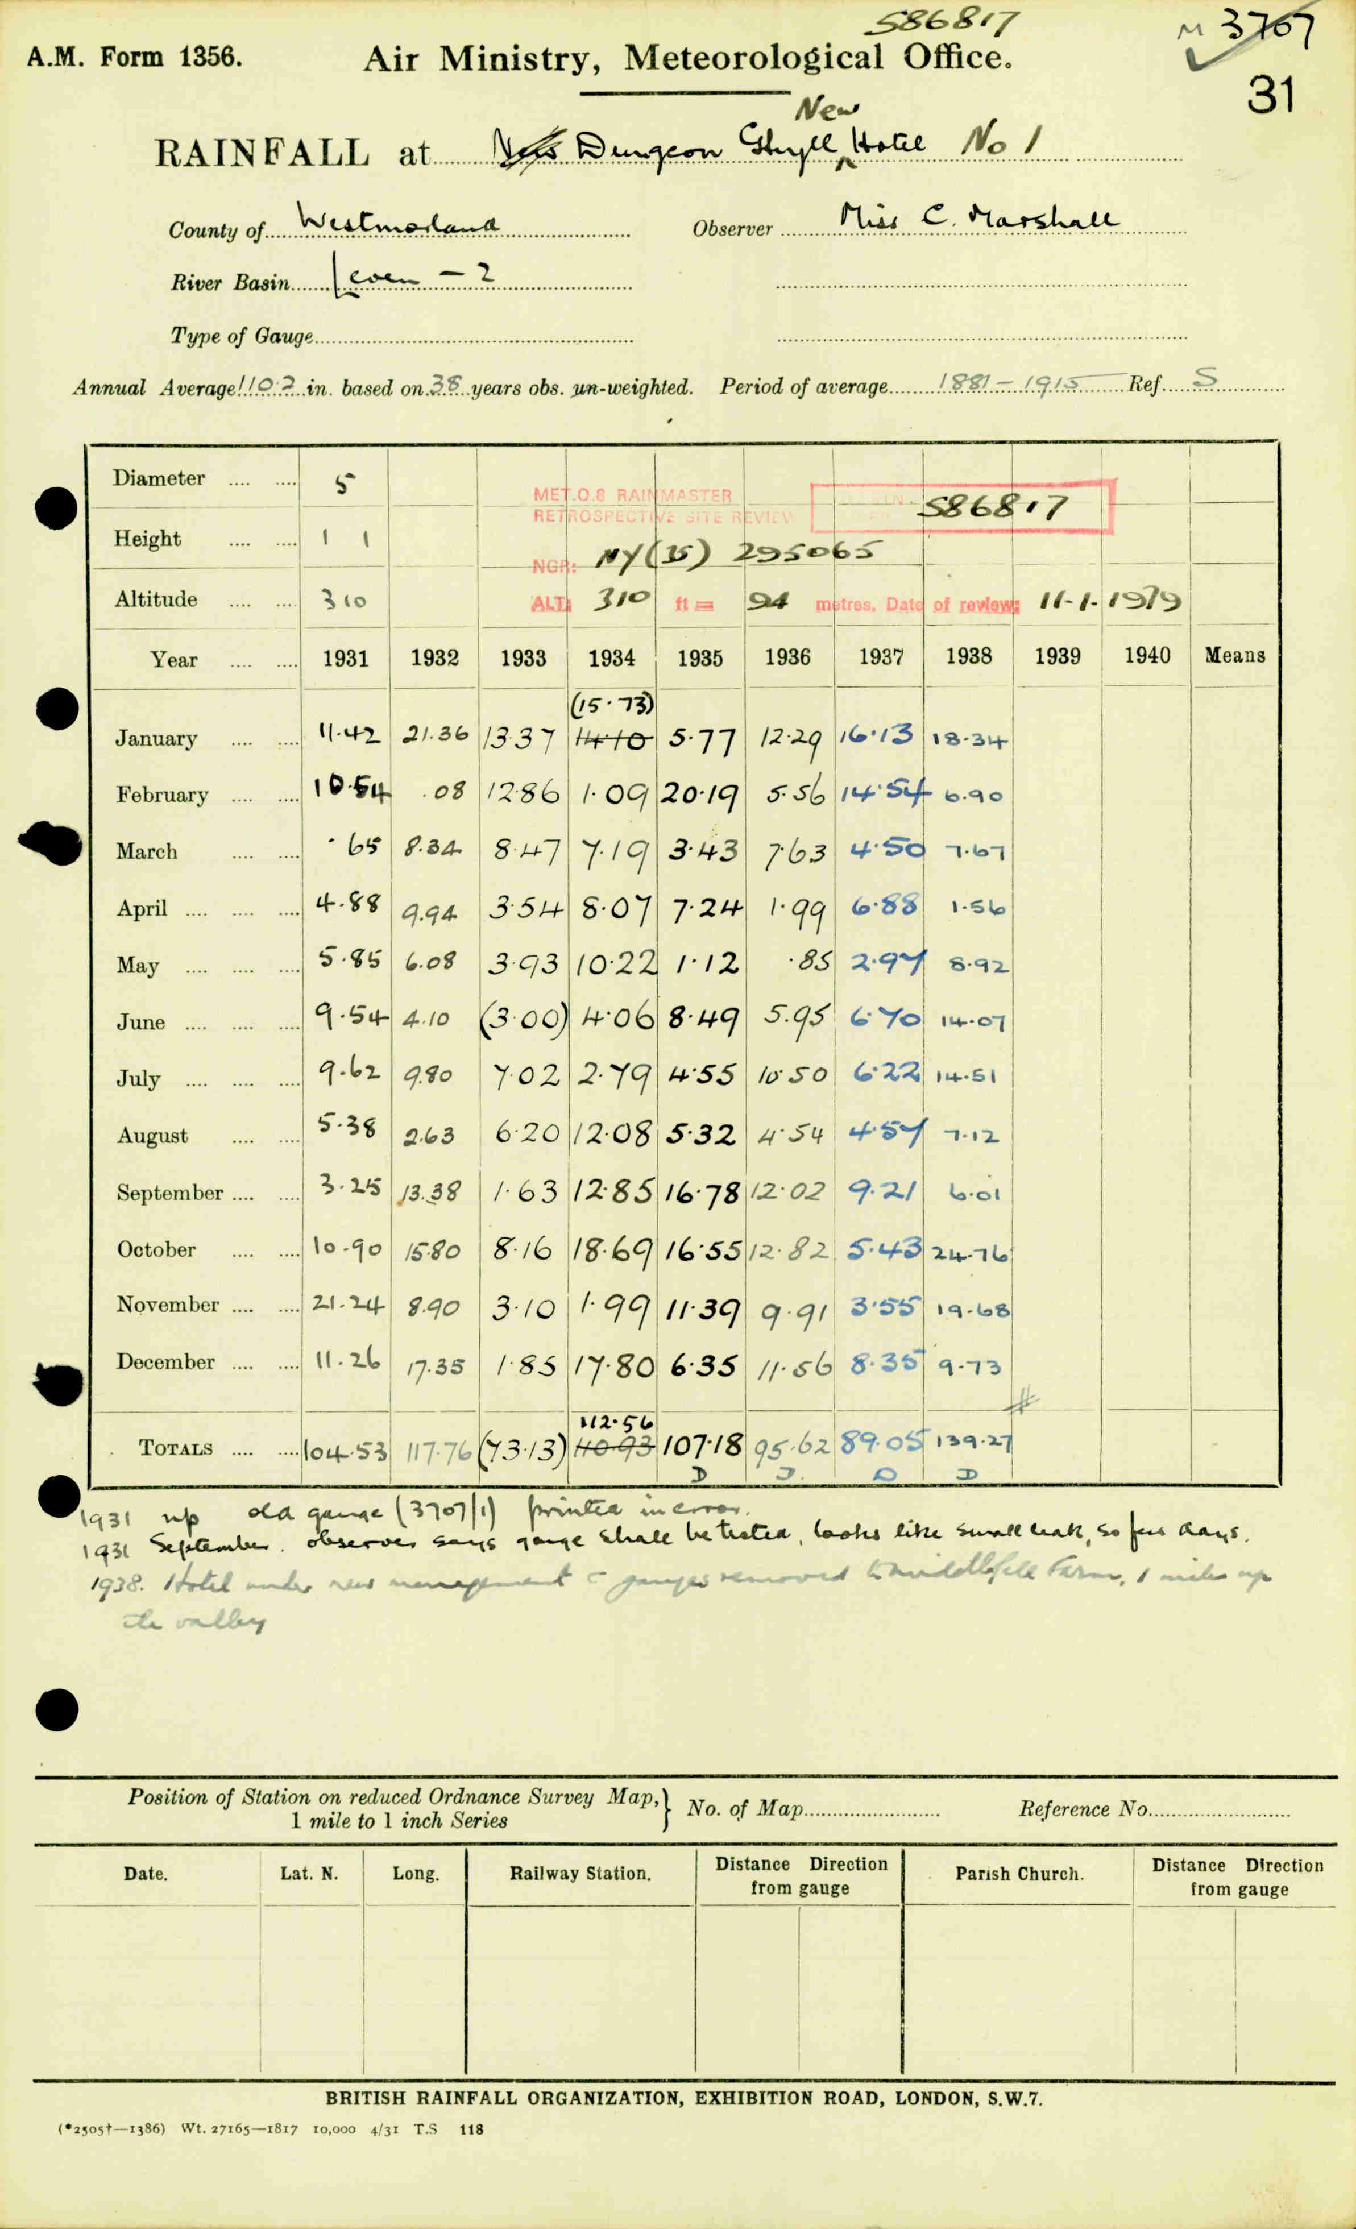 586817
M 3707
A.M. Form 1356. Air Ministry, Meteorological Office.
31
New
RAINFALL at New Dungeon Ghyll Hotel No 1
County of Westmorland Observer Miss C. Marshall
River Basin Leven - 2
Type of Gauge
Annual Average 110.2 in. based on 38 years obs. un-weighted. Period of average 1881-1915 Ref. S
Diameter 5
MET.O.8 RAINMASTER
RETROSPECTIVE SITE REVIEW 586817
Height 1 1
NGR: NY(35) 295065
Altitude 310
ALT: 310 ft = 94 metres. Date of review: 11-1-1979
Year 1931 1932 1933 1934 1935 1936 1937 1938 1939 1940 Means
(15.73)
January 11.42 21.36 13.37 14.10 5.77 12.29 16.13 18.34
February 10.54 .08 12.86 1.09 20.19 5.56 14.54 6.90
March .65 8.34 8.47 7.19 3.43 7.63 4.50 7.67
April 4.88 9.94 3.54 8.07 7.24 1.99 6.88 1.56
May 5.85 6.08 3.93 10.22 1.12 .85 2.97 8.92
June 9.54 4.10 (3.00) 4.06 8.49 5.95 6.70 14.07
July 9.62 9.80 7.02 2.79 4.55 10.50 6.22 14.51
August 5.38 2.63 6.20 12.08 5.32 4.54 4.57 7.12
September 3.25 13.38 1.63 12.85 16.78 12.02 9.21 6.01
October 10.90 15.80 8.16 18.69 16.55 12.82 5.43 24.76
November 21.24 8.90 3.10 1.99 11.39 9.91 3.55 19.68
December 11.26 17.35 1.85 17.80 6.35 11.56 8.35 9.73
112.56
TOTALS 104.53 117.76 (73.13) 110.93 107.18 95.62 89.05 139.27
D D D D
1931 up old gauge (3707/1) printed in error.
1931 September. observer says gauge shall be tested, looks like small leak, so few days.
1938. Hotel under new management & gauges removed to Middlefell Farm, 1 mile up
the valley
Position of Station on reduced Ordnance Survey Map,} No. of Map Reference No.
1 mile to 1 inch Series
Date. Lat. N. Long. Railway Station. Distance Direction from gauge Parish Church. Distance Direction from gauge
BRITISH RAINFALL ORGANIZATION, EXHIBITION ROAD, LONDON, S.W.7.
(*2505†—1386) Wt. 27165—1817 10,000 4/31 T.S 118